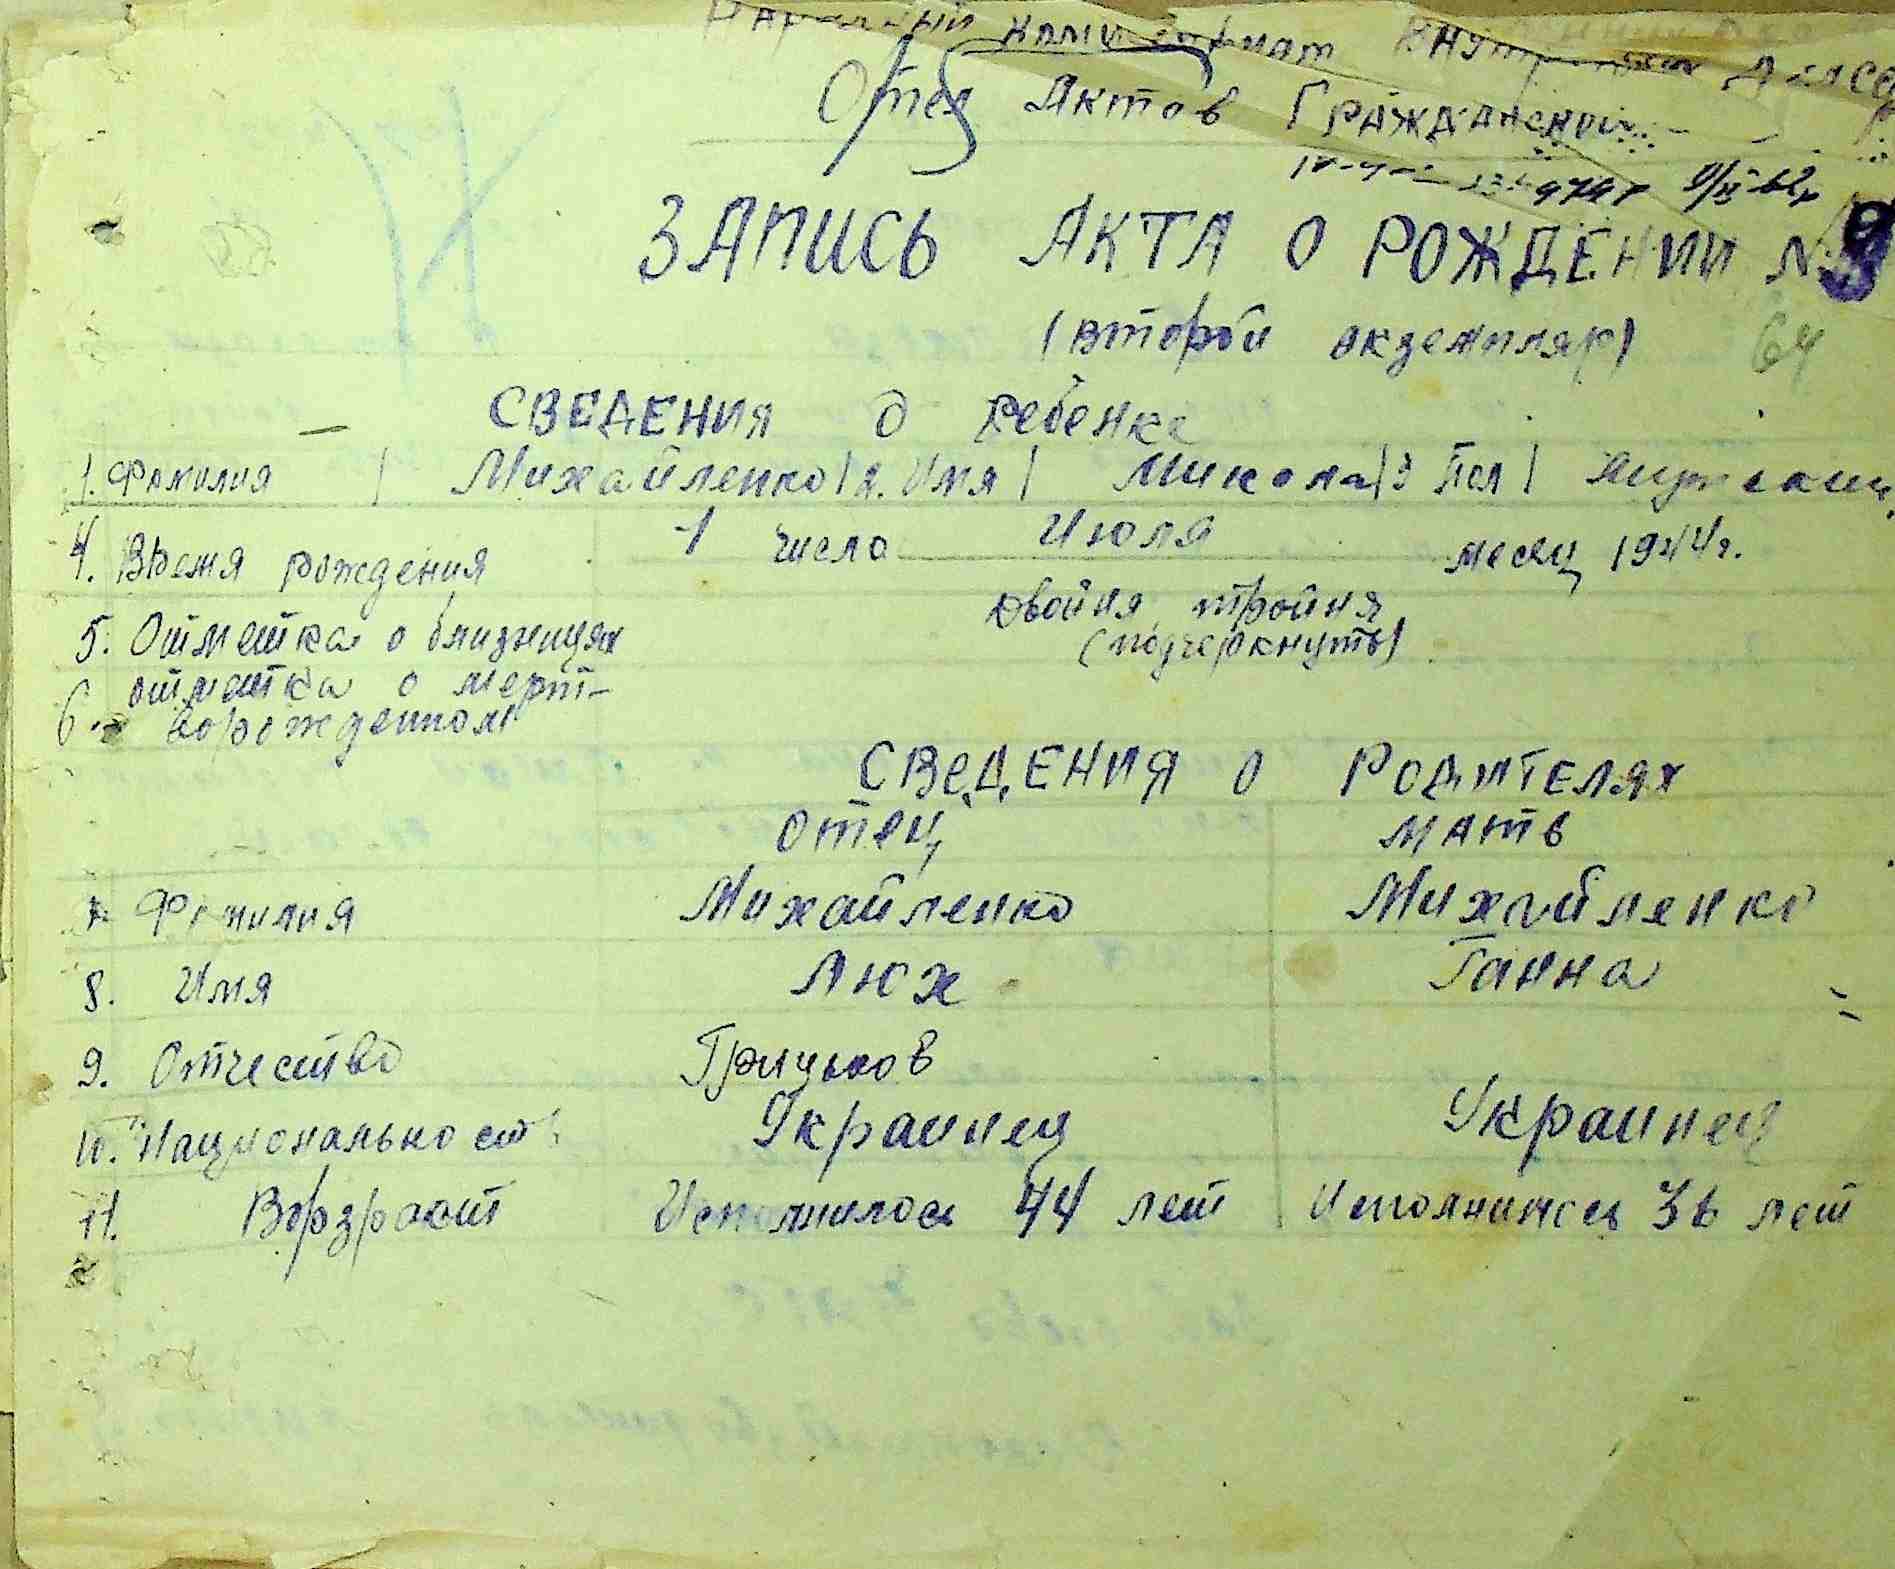 Народный Комиссариат Внутренних Дел СССР
Отдел Актов Гражданского
9/II-62г
ЗАПИСЬ АКТА О РОЖДЕНИИ № 9
(второй экземпляр) 64
СВЕДЕНИЯ О ребенке
1. Фамилия | Михайленко | 2. Имя | Микола | 3 Пол | мужской
4. Время рождения 1 число Июля месяц 1944г.
5. Отметка о близнецах двойня, тройня
(подчеркнуть)
6. отметка о мерт-
ворожденном
СВЕДЕНИЯ О РОДИТЕЛЯХ
отец мать
7. Фамилия Михайленко Михайленко
8. Имя Люх Ганна
9. Отчество Грицьков
10. Национальность Украинец Украинец
11. Возраст Исполнилось 44 лет Исполнилось 36 лет